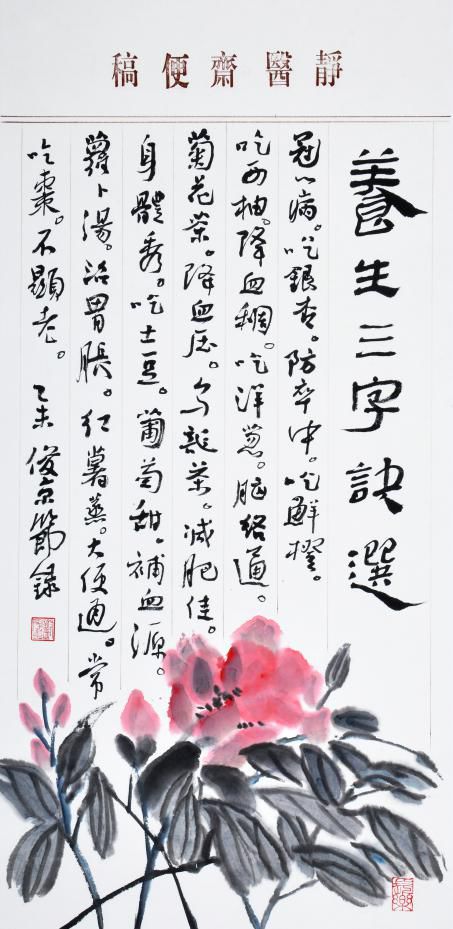 靜醫齋便稿
養生三字訣選
冠心病。吃銀杏。防卒中。吃鮮橙。
吃西柚。降血稠。吃洋葱。脑络通。
菊花茶。降血压。乌龍茶。减肥佳。
身體秀。吃土豆。葡萄甜。補血源。
蘿卜湯。治胃脹。红薯蒸。大便通。常
吃棗。不顯老。乙未俊京節録